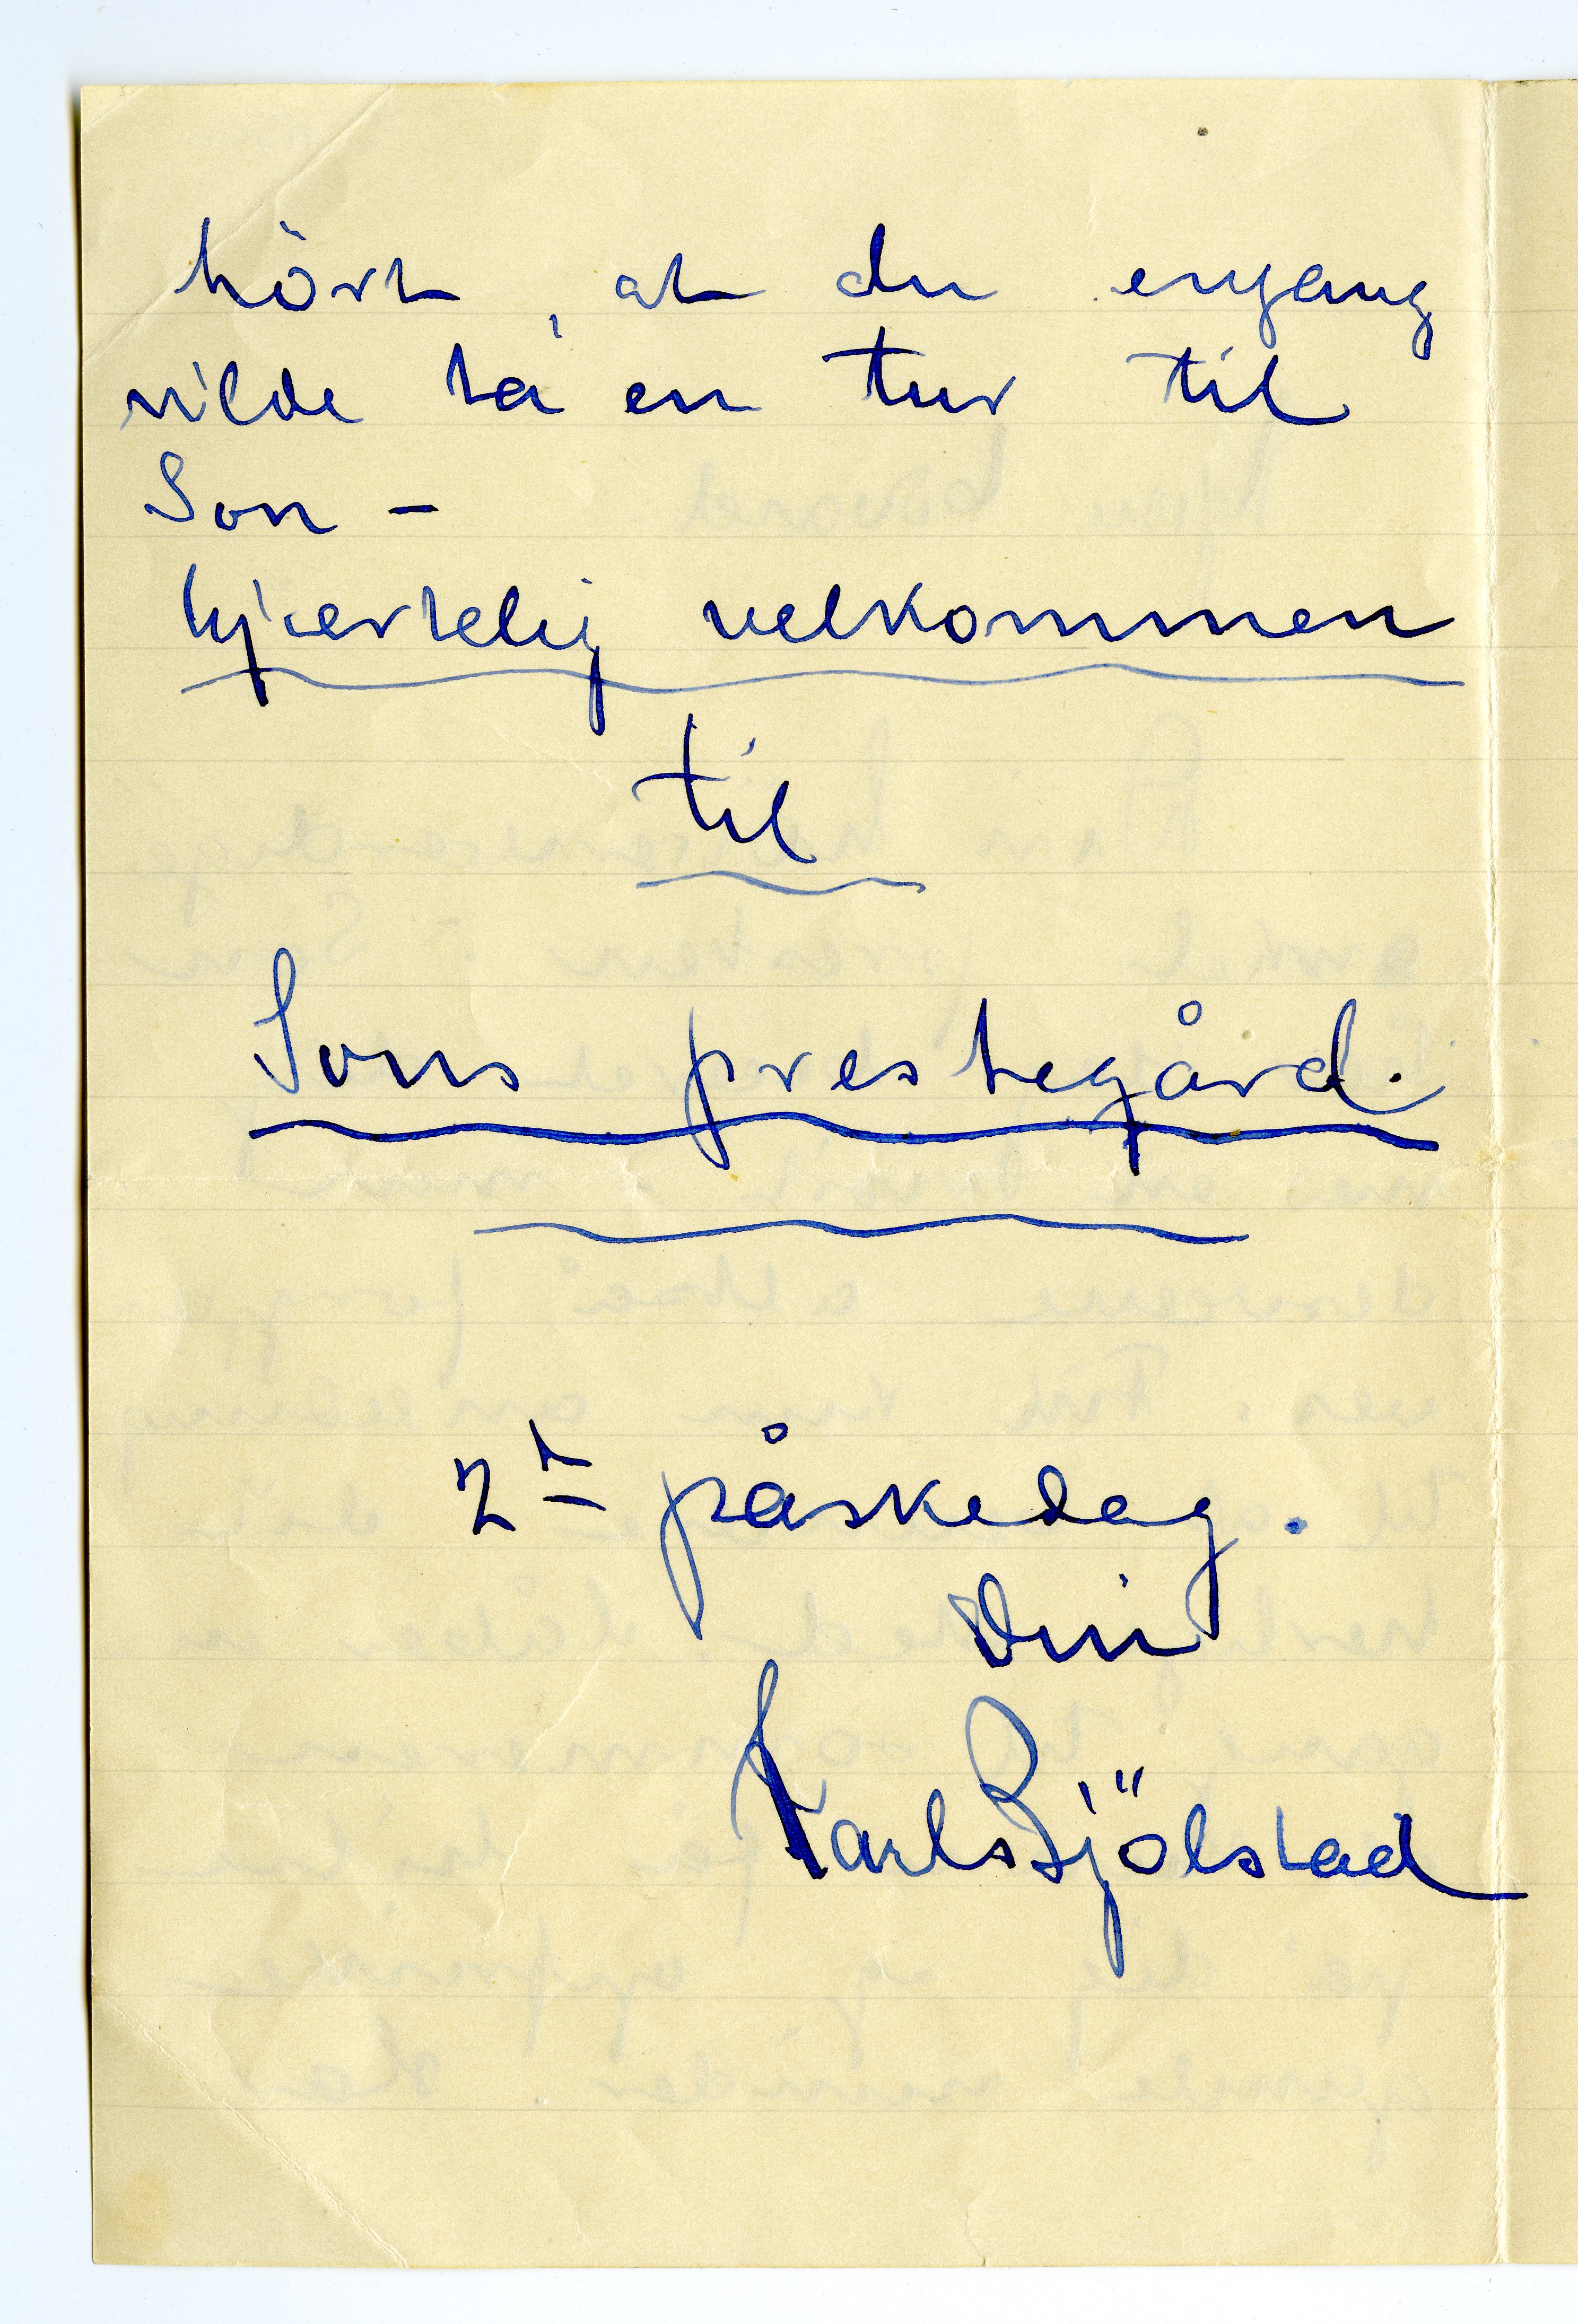 hört, at du engang
vilde ta en tur til
Son –
hjærtelig velkommen
til
Sons prestegård.
2den påskedag.
Din
Karl Bjölstad